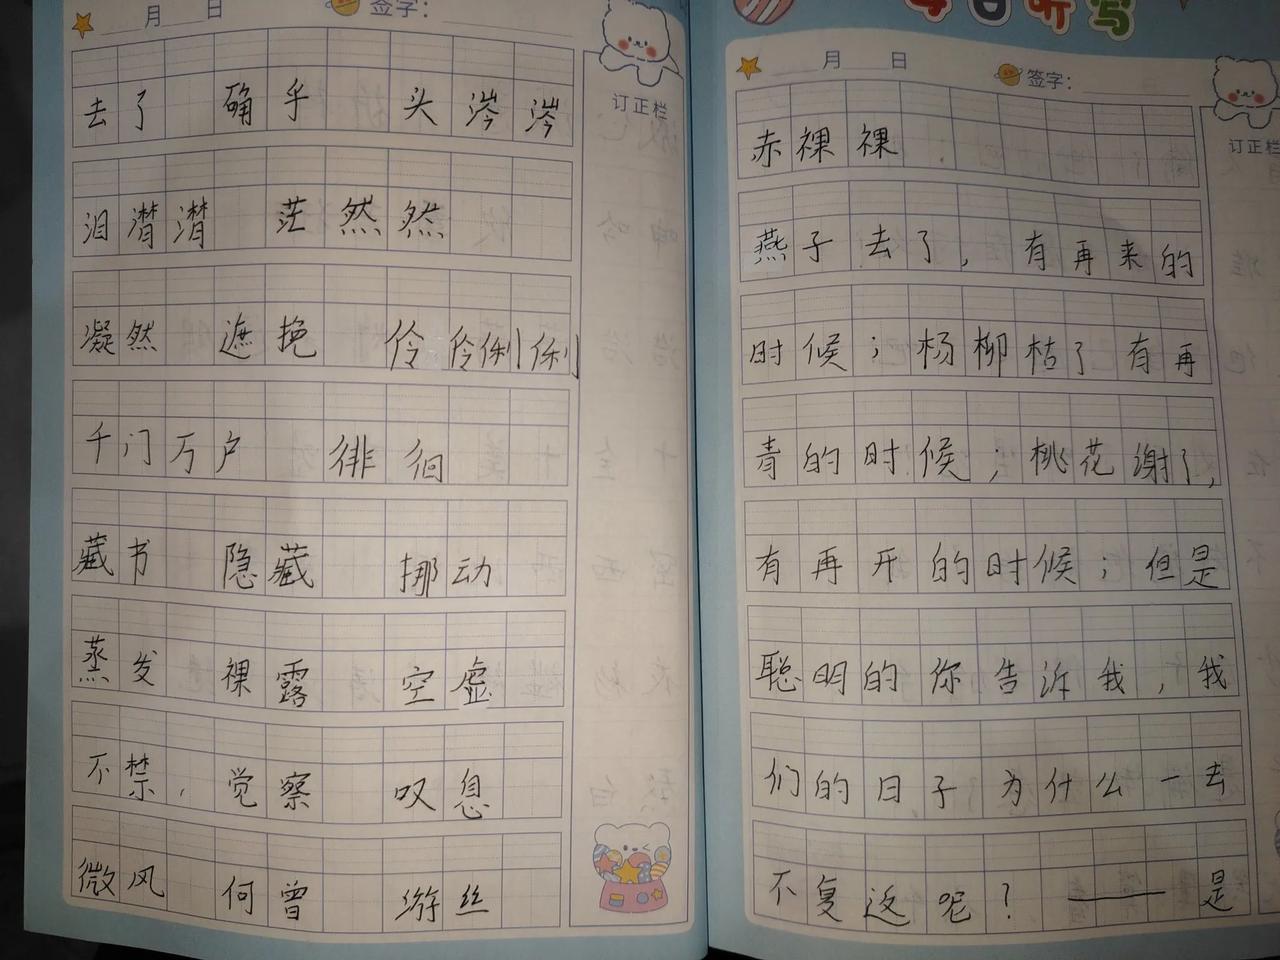 月 日 签字：
去了 确乎 头涔涔
泪潸潸 茫然然
凝然 遮挽 伶伶俐俐
千门万户 徘徊
藏书 隐藏 挪动
蒸发 裸露 空虚
不禁， 觉察 叹息
微风 何曾 游丝
订正栏
每日听写
月 日 签字：
赤裸裸
燕子去了，有再来的
时候；杨柳枯了有再
青的时候；桃花谢了，
有再开的时候；但是
聪明的你告诉我，我
们的日子为什么一去
不复返呢？——是
订正栏